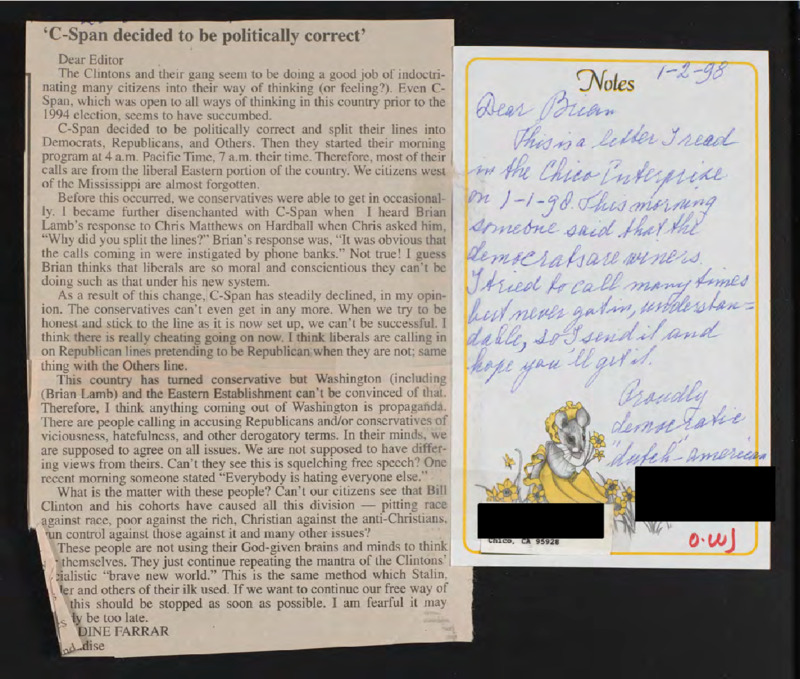 ‘C-Span decided to be politically correct’
Dear Editor
The Clintons and their gang seem to be doing a good job of indoctri-
nating many citizens into their way of thinking (or feeling?). Even C-
Span, which was open to all ways of thinking in this country prior to the
1994 election, seems to have succumbed.
C-Span decided to be politically correct and split their lines into
Democrats, Republicans, and Others. Then they started their morning
program at 4 a.m. Pacific Time, 7 a.m. their time. Therefore, most of their
calls are from the liberal Eastern portion of the country. We citizens west
of the Mississippi are almost forgotten.
Before this occurred, we conservatives were able to get in occasional-
ly. I became further disenchanted with C-Span when I heard Brian
Lamb's response to Chris Matthews on Hardball when Chris asked him,
“Why did you split the lines?” Brian's response was, “It was obvious that
the calls coming in were instigated by phone banks.” Not true! I guess
Brian thinks that liberals are so moral and conscientious they can't be
doing such as that under his new system.
As a result of this change, C-Span has steadily declined, in my opin-
ion. The conservatives can't even get in any more. When we try to be
honest and stick to the line as it is now set up, we can't be successful. I
think there is really cheating going on now. I think liberals are calling in
on Republican lines pretending to be Republican when they are not; same
thing with the Others line.
This country has turned conservative but Washington (including
(Brian Lamb) and the Eastern Establishment can't be convinced of that.
Therefore, I think anything coming out of Washington is propaganda.
There are people calling in accusing Republicans and/or conservatives of
viciousness, hatefulness, and other derogatory terms. In their minds, we
are supposed to agree on all issues. We are not supposed to have differ-
ing views from theirs. Can't they see this is squelching free speech? One
recent morning someone stated “Everybody is hating everyone else.”
What is the matter with these people? Can't our citizens see that Bill
Clinton and his cohorts have caused all this division — pitting race
against race, poor against the rich, Christian against the anti-Christians,
un control against those against it and many other issues?
These people are not using their God-given brains and minds to think
themselves. They just continue repeating the mantra of the Clintons'
ialistic “brave new world.” This is the same method which Stalin,
er and others of their ilk used. If we want to continue our free way of
this should be stopped as soon as possible. I am fearful it may
ly be too late.
DINE FARRAR
dise
Notes
1-2-98
Dear Brian
This is a letter I read
in the Chico Enterprise
on 1-1-98. This morning
someone said that the
democrats are winers.
I tried to call many times
but never got in, understan-
dable, so I send it and
hope you'll get it.
Proudly
democratic
"dutch"-american
Chico, CA 95928
O.WJ